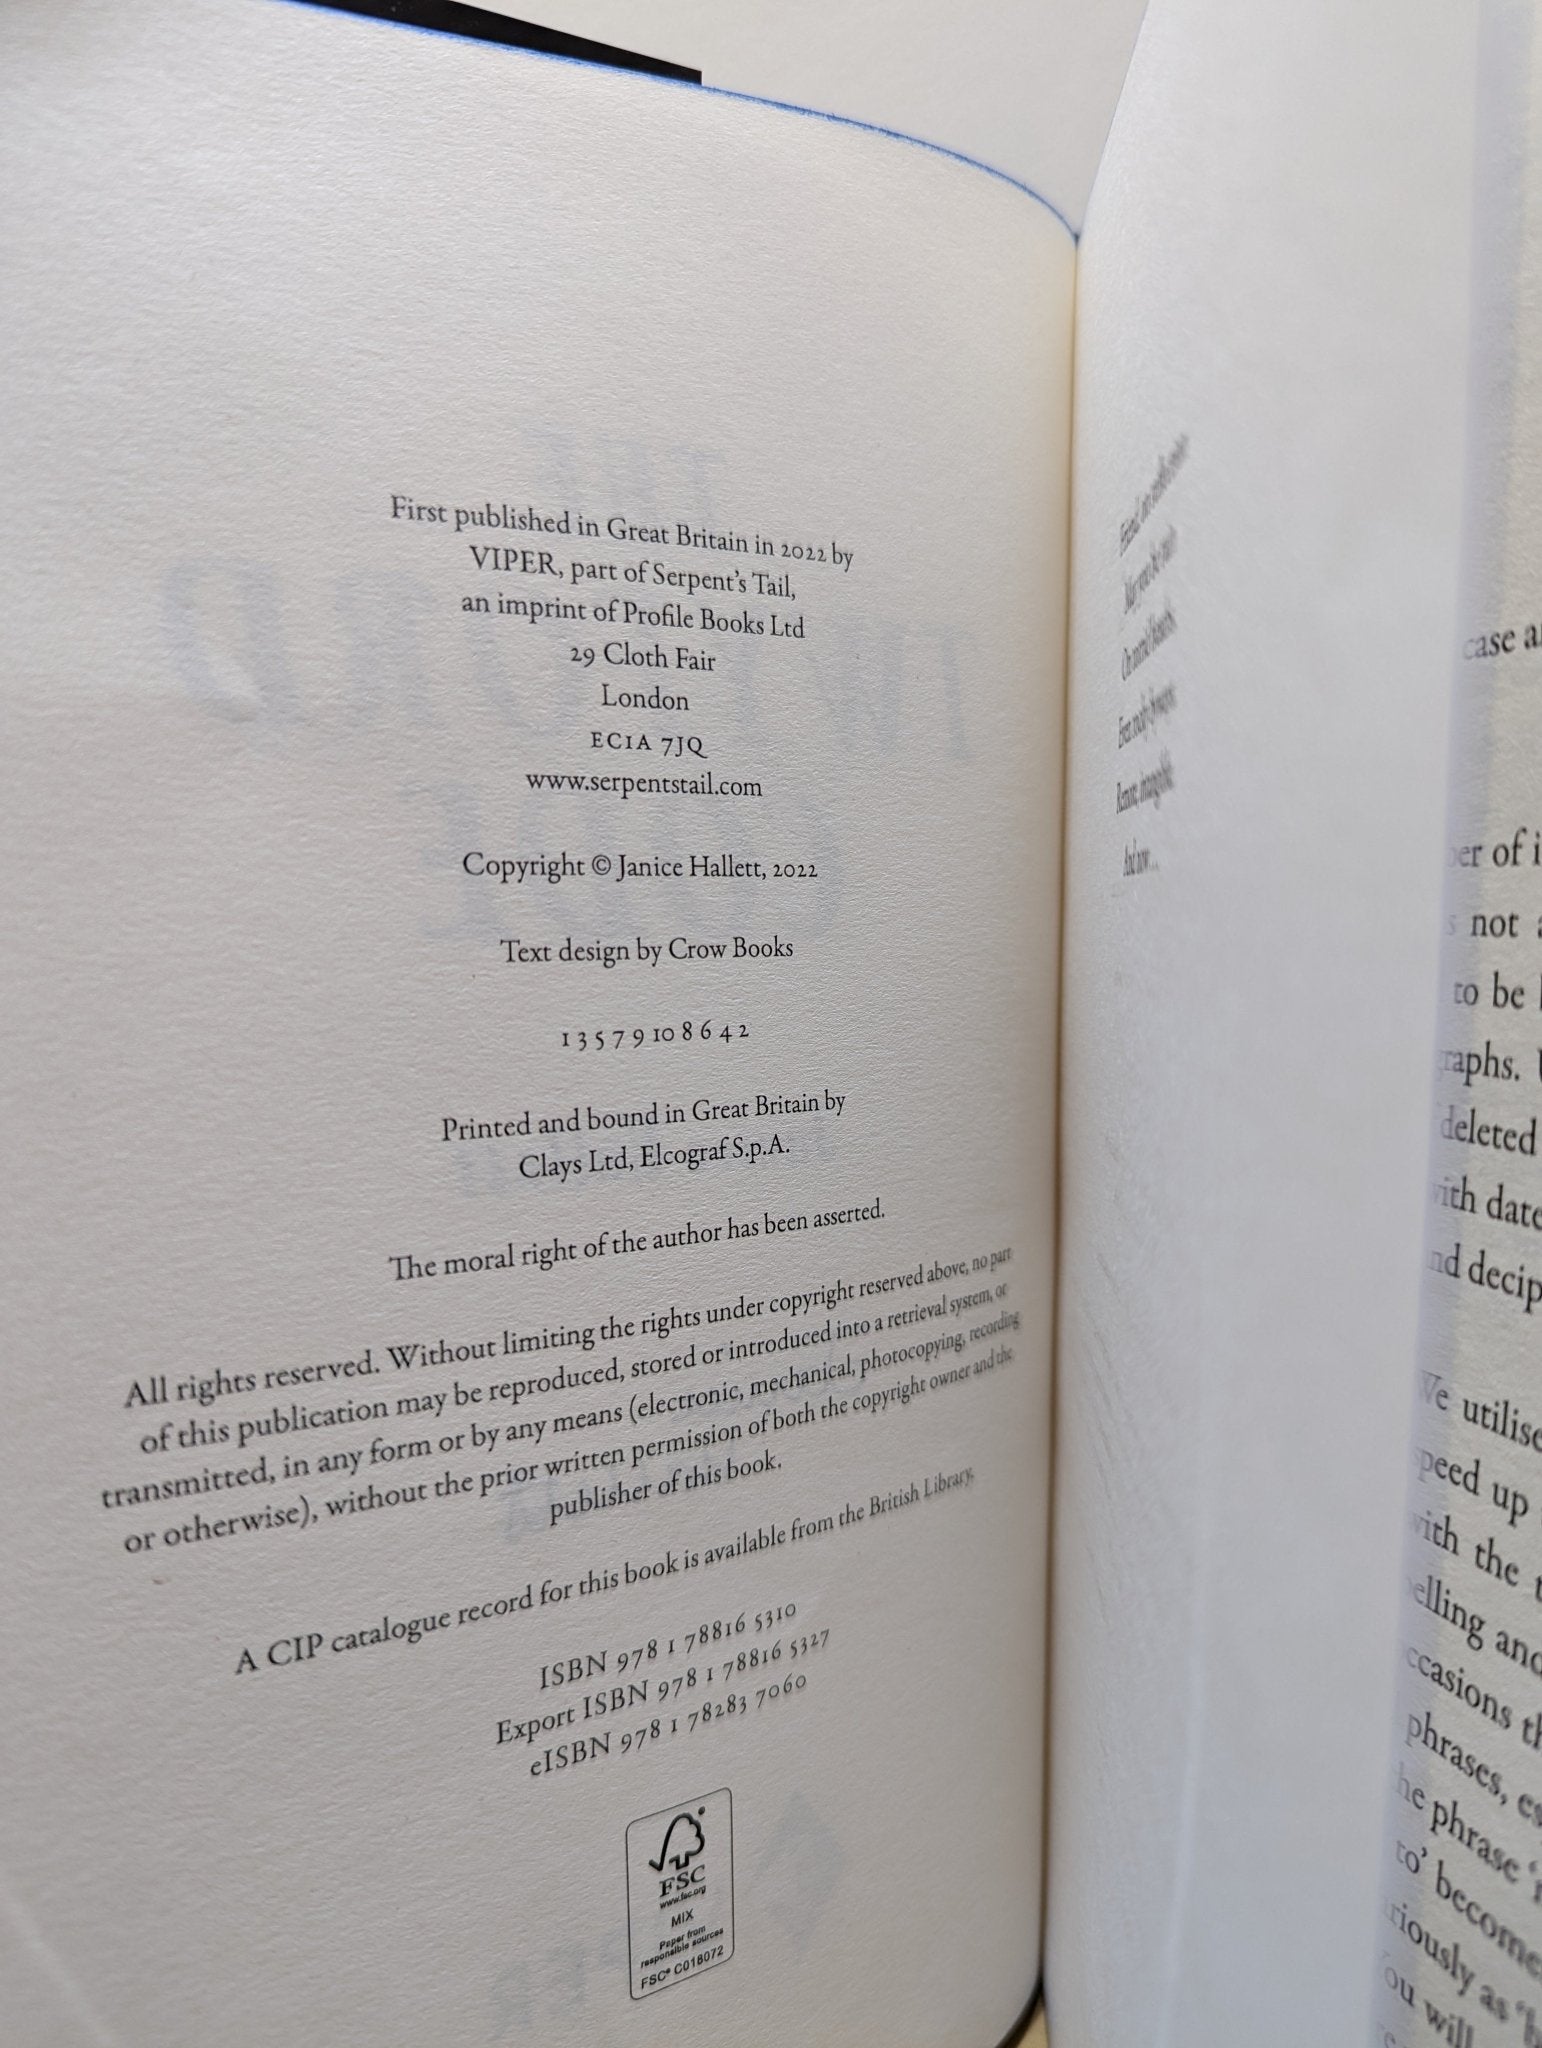 First published in Great Britain in 2022 by
VIPER, part of Serpent's Tail,
an imprint of Profile Books Ltd
29 Cloth Fair
London
EC1A 7JQ
www.serpentstail.com
Copyright © Janice Hallett, 2022
Text design by Crow Books
1 3 5 7 9 10 8 6 4 2
Printed and bound in Great Britain by
Clays Ltd, Elcograf S.p.A.
The moral right of the author has been asserted.
All rights reserved. Without limiting the rights under copyright reserved above, no part
of this publication may be reproduced, stored or introduced into a retrieval system, or
transmitted, in any form or by any means (electronic, mechanical, photocopying, recording
or otherwise), without the prior written permission of both the copyright owner and the
publisher of this book.
A CIP catalogue record for this book is available from the British Library.
ISBN 978 1 78816 5310
Export ISBN 978 1 78816 5327
eISBN 978 1 78283 7060
FSC
www.fsc.org
MIX
Paper from
responsible sources
FSC® C018072
And now…
case
of
not
to be
deleted
with date
We utilise
speed up
with the
occasions
phrases,
the phrase
to' become
as
ou will